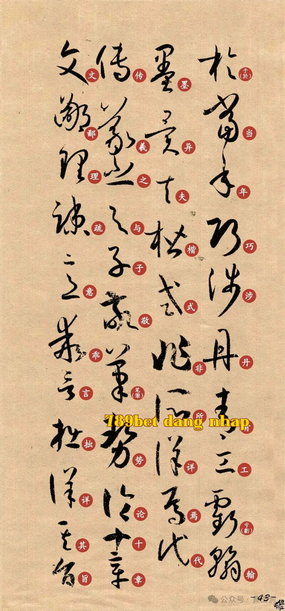 於當年巧涉丹青工虧翰
墨異夫楷式非所詳焉代
傳羲之與子敬筆勢論十章
文鄙理疏意乖言拙詳其旨
789bet dang nhap
公众号
-43-